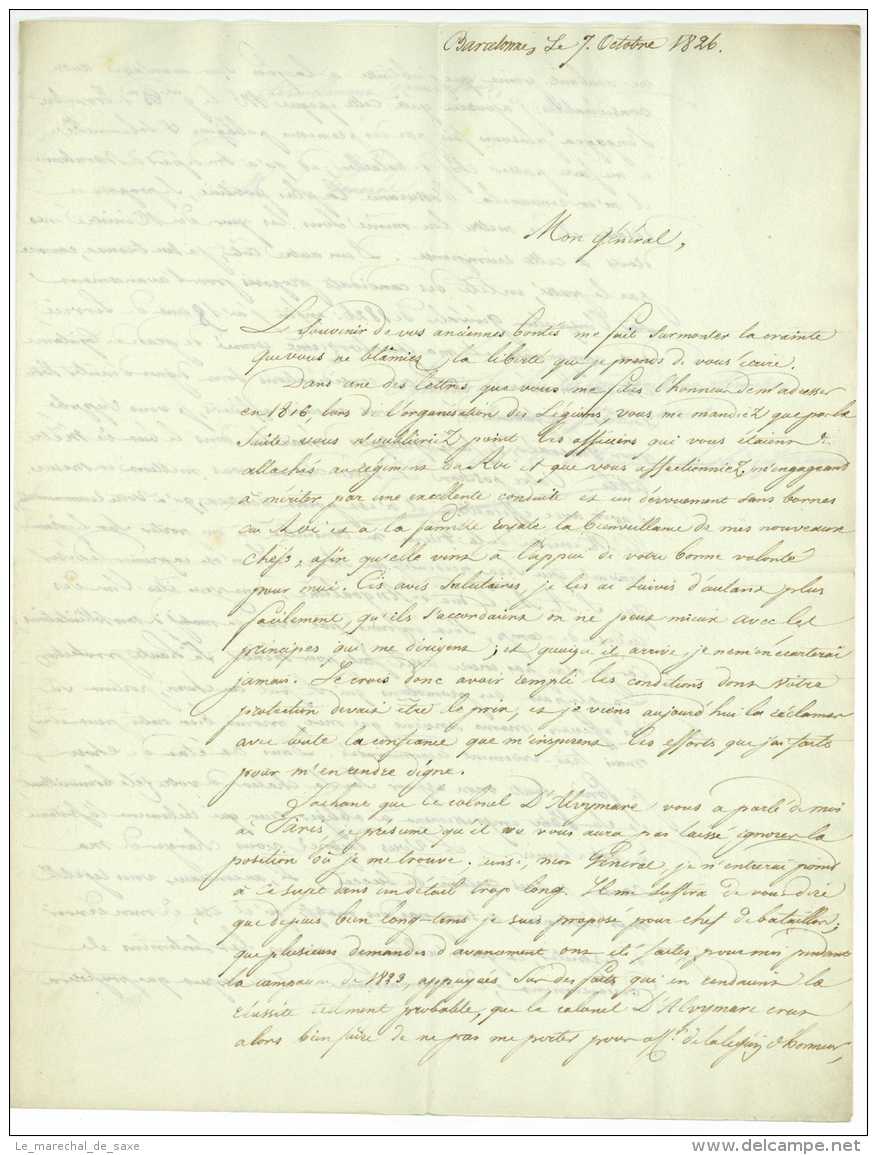 Barcelonne, Le 7. Octobre 1826.
Mon Général,
Le Souvenir de vos anciennes bontés me fait Surmonter la crainte
que vous ne blâmiez la liberté que je prends de vous écrire.
Dans une des lettres que vous me fites l'honneur de m'adresser
en 1816, lors de l'organisation des Légions, vous me mandiez que par la
Suite vous n'oublieriez point les officiers qui vous étaient
attachés au régim nt du Roi et que vous affectionniez, m'engageant
à mériter par une excellente conduite et un dévouement sans bornes
au Roi et à la famille royale la bienveillance de mes nouveaux
chefs, afin qu'elle vint à l'appui de votre bonne volonté
pour moi. Ces avis Salutaires, je les ai Suivis d'autant plus
facilement, qu'ils s'accordaient on ne peut mieux avec les
principes qui me dirigent; et quoiqu'il arrive, je ne m'en écarterai
jamais. Je crois donc avoir rempli les conditions dont Votre
protection devait être le prix, et je viens aujourd'hui la réclamer
avec toute la confiance que m'inspirent les efforts que j'ai faits
pour m'en rendre digne.
Sachant que le colonel D'Alvymare vous a parlé de moi
à Paris, je présume qu'il vous aura pas laissé ignorer la
position où je me trouve. ainsi, mon Général, je n'entrerai point
à ce sujet dans un détail trop long. Il me Suffira de vous dire
que depuis bien long-tems je suis proposé pour chef de bataillon;
que plusieurs demandes d'avancement ont été faites pour moi pendant
la campagne de 1823, appuyées Sur des faits qui en rendaient la
réussite tellement probable, que le colonel D'Alvymare crut
alors bien faire de ne pas me porter pour off.er de la légion d'honneur,
Le_marechal_de_saxe
www.delcampe.net